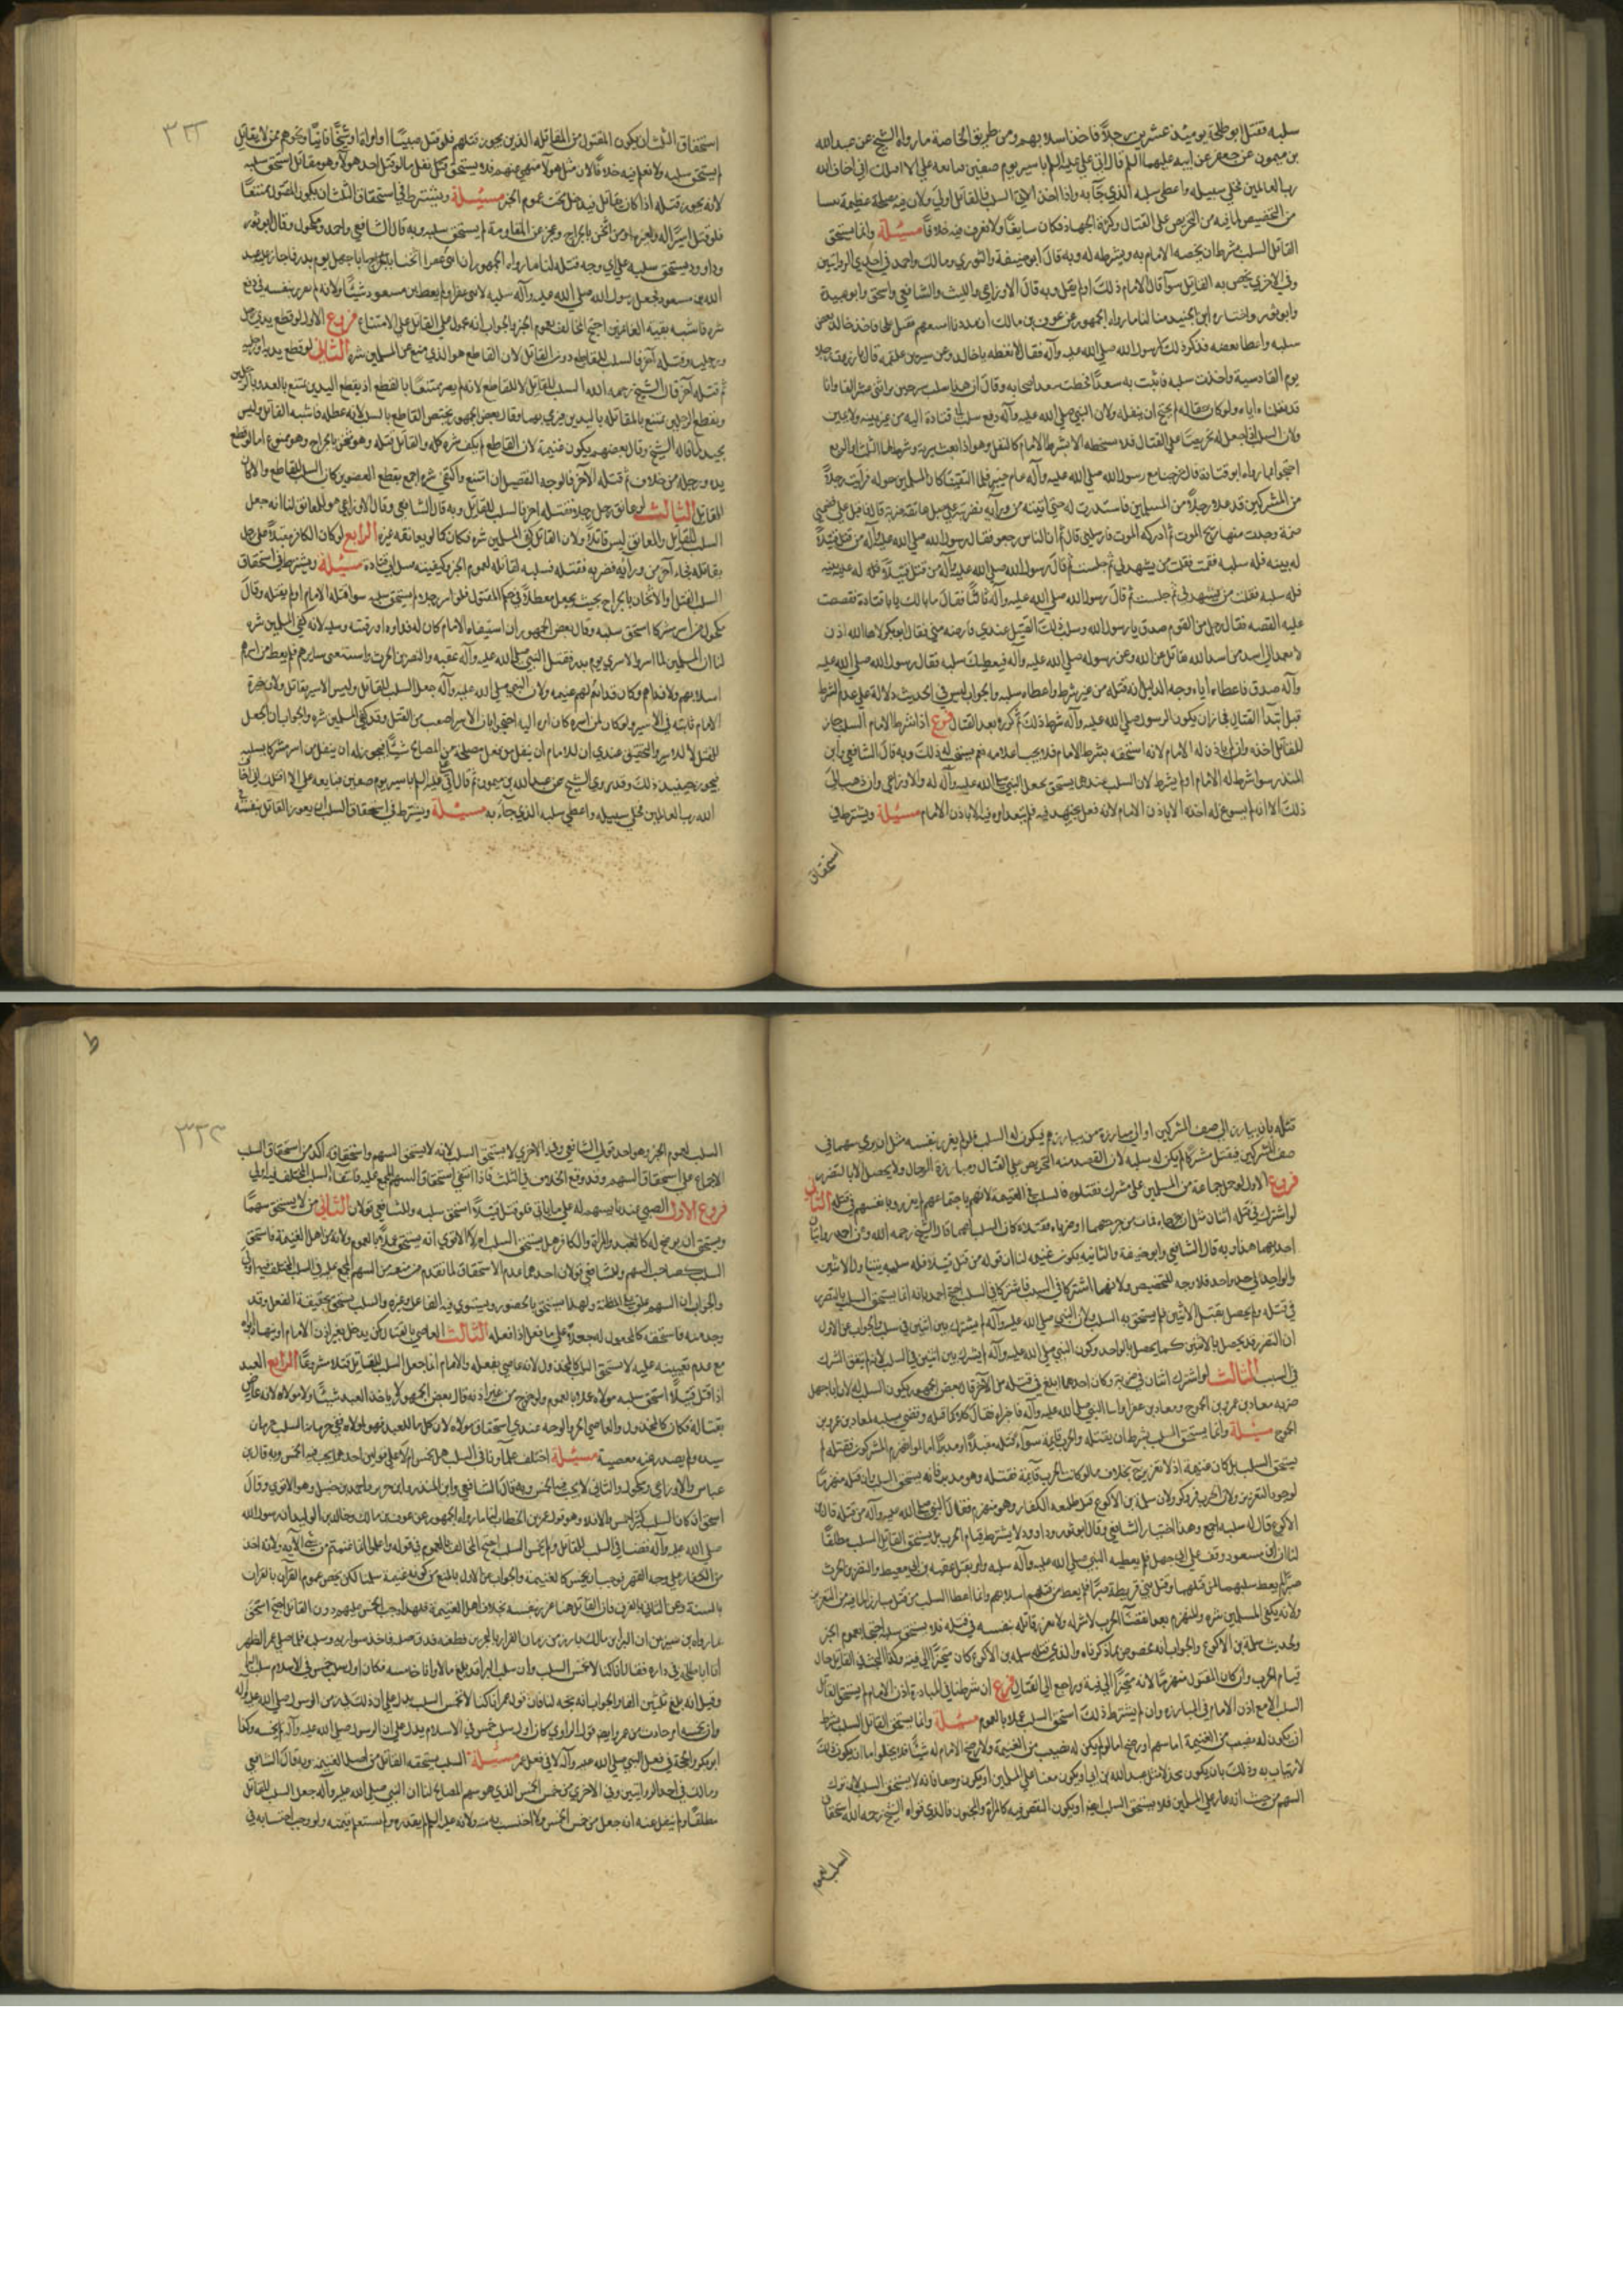 سلبه فقتل ابو طلحة يومئذ عشرين رجلاً فاخذ اسلابهم ومن طريق الخاصة ما رواه الشيخ عن عبد الله
بن ميمون عن جعفر عن ابيه عليهما السلم قال اتى علي عليه السلم باسير يوم صفين فبايعه فقال علي لا اقتلك اني اخاف الله
رب العالمين فخلي سبيله واعطى سلبه الذي جآء به واذا اخذ الاتي السلب فالقاتل اولى ولان فيه مصلحة عظيمة تنشا
من التخصيص لما فيه من التحريص على القتال وكثرة الجهاد فكان سايغاً ولا نعرف فيه خلافاً مسئلة وانما يستحق
القاتل السلب بشرط ان يخصه الامام به ويشرطه له وبه قال ابو حنيفة والثوري ومالك واحمد في احدي الروايتين
وفي الاخري يختص به القاتل سوآء قال الامام ذلك او لم يقل وبه قال الاوزاعي والليث والشافعي واسحق وابو عبيدة
وابو ثور واختاره ابن الجنيد منا لنا ما رواه الجمهور عن عوف بن مالك ان مدديا اتبعهم فقتل علجا فاخذ خالد بعض
سلبه واعطاه بعضه فذكر ذلك لرسول الله صلي الله عليه وآله فقال لا تعطه يا خالد وعن سبرة بن علقمة قال بارزت رجلا
يوم القادسية واخذت سلبه فاتيت به سعداً فخطب سعد اصحابه وقال ان هذا سلب خير من اثنى عشر الفا وانا
قد نفلناه اياه ولو كان حقا له لم يحتج ان ينفله ولان النبي صلي الله عليه وآله دفع سلب ابي قتادة اليه من غير بينة ولا يمين
ولان السلب انما جعل له تحريصاً علي القتال فلا يستحقه الا بشرط الامام كالنفل وهو اذا بعث سرية وشرط لها الثلث او الربع
احتجوا بما رواه ابو قتادة قال خرجنا مع رسول الله صلي الله عليه وآله عام خيبر فلما التقينا كان للمسلمين جولة فرايت رجلاً
من المشركين قد علا رجلاً من المسلمين فاستدرت له حتى اتيته من ورآيه فضربته علي حبل عاتقه ضربة قال فاقبل علي فضمني
ضمة وجدت منها ريح الموت ثم ادركه الموت فارسلني قال ثم ان الناس رجعوا فقال رسول الله صلي الله عليه وآله من قتل قتيلاً
له بينة فله سلبه فقمت فقلت من يشهد لي ثم جلست ثم قال رسول الله صلي الله عليه وآله من قتل قتيلاً له عليه بينة
فله سلبه فقلت من يشهد لي ثم جلست ثم قال رسول الله صلي الله عليه وآله ثالثاً فقال ما بالك يا ابا قتادة فقصصت
عليه القصه فقال رجل من القوم صدق يا رسول الله وسلب ذلك القتيل عندي فارضه مني فقال ابو بكر لاها الله اذن
لا يعمد الى اسد من اسد الله يقاتل عن الله وعن رسوله صلي الله عليه وآله فيعطيك سلبه فقال رسول الله صلي الله عليه
وآله صدق فاعطاه اياه وجه الدليل انه قتله من غير شرط واعطاه سلبه والجواب ليس في الحديث دلالة علي عدم الشرط
قبل ابتدآ القتال فجاز ان يكون الرسول صلي الله عليه وآله شرط ذلك ثم كرره بعد القتال فرع اذا شرط الامام السلب جاز
للقاتل اخذه وان لم ياذن له الامام لانه استحقه بشرط الامام فلا يجب اعلامه نعم يستحب له ذلك وبه قال الشافعي وابن
المنذر سوآ شرط له الامام او لم يشرط لان السلب عندهما يستحق بجعل النبي صلي الله عليه وآله له والاوزاعي وان ذهب الى
ذلك الا انه لم يسوغ له اخذه الا باذن الامام لانه فعل مجتهد فيه فلم ينفذ امره فيه الا باذن الامام مسئلة ويشترط في
استحقاق
٣٣٢
استحقاق الثلث ان يكون المقتول من المقاتلة الذين يجوز قتلهم فلو قتل صبيّاً او امراة او شيخاً فانياً ونحوهم ممن لا يقاتل
لم يستحق سلبه ولا نعلم فيه خلافاً لان مثل هولآ منهي عنهم فلا يستحق بقتل نفل ما لو قتل احد هولآء وهو مقاتل استحق سلبه
لانه يجوز قتله اذا كان يقاتل فيدخل تحت عموم الخبر مسئلة ويشترط في استحقاق الثلث ان يكون المقتول ممتنعاً
فلو قتل اسيراً له ولغيره او من اثخن بالجراح وعجز عن المقاومة لم يستحق سلبه وبه قال الشافعي واحمد ومكحول وقال ابو ثور
وداوود يستحق سلبه على اي وجه قتله لنا ما رواه الجمهور ان ابنى عفراء اثخنا بالجراح ابا جهل يوم بدر فاجاز عليه عبد
الله بن مسعود فجعل رسول الله صلي الله عليه وآله سلبه لابنى عفرا ولم يعط ابن مسعود شيئاً ولانه لم يغرر بنفسه في دفع
شره فاشبه بقية الغانمين احتج المخالف بعموم الخبر والجواب انه محمول علي القاتل علي الامتناع فروع الاول لو قطع يدي رجل
ورجليه وقتله آخر فالسلب للقاطع دون القاتل لان القاطع هو الذي منع عن المسلمين شره الثاني لو قطع يديه او رجليه
ثم قتله آخر قال الشيخ رحمه الله السلب للقاتل لا للقاطع لانه لم يصر ممتنعاً بالقطع اذ بقطع اليدين يمتنع بالعدو بالرجلين
وبقطع الرجلين يمتنع بالمقاتله باليدين فيرمي بهما وقال بعض الجمهور يختص القاطع بالسلب لانه عطله فاشبه القاتل وليس
بجيد لما قاله الشيخ وقال بعضهم يكون غنيمة لان القاطع لم يكف شره كله والقاتل قتله وهو مثخن بالجراح وهو ممنوع اما لو قطع
يده ورجله من خلاف ثم قتله الآخر فالوجه التفصيل ان امتنع واكتفي شره اجمع بقطع العضوين كان السلب للقاطع والا كان
للقاتل الثالث لو عانق رجل رجلاً فقتله اخر فالسلب للقاتل وبه قال الشافعي وقال الاوزاعي هو للمعانق لنا انه جعل
السلب للقاتل والمعانق ليس قاتلاً ولان القاتل كفى المسلمين شره فكان كما لو لم يعانقه غيره الرابع لو كان الكافر مقبلاً على رجل
يقاتله فجآء آخر من ورآيه فضربه فقتله فسلبه لقاتله لعموم الخبر وكيفيته سلب ابي قتادة مسئلة ويشترط في استحقاق
السلب القتل او الاثخان بالجراح بحيث يجعل معطلاً في حكم المقتول فلو اسر رجلا لم يستحق سلبه سوا قتله الامام او لم يقتله وقال
مكحول من اسر مشركا استحق سلبه وقال بعض الجمهور ان استبقاه الامام كان له فداوه او رقبته وسلبه لانه كفى المسلمين شره
لنا ان المسلمين لما اسروا الاسري يوم بدر فقتل النبي صلي الله عليه وآله عقبه والنضر بن الحرث واستبقى سايرهم فلم يعط من اسرهم
اسلابهم ولا فداهم وكان فداؤهم لهم غنيمة ولان النبي صلي الله عليه وآله جعل السلب للقاتل وليس الاسر بقاتل ولان خيرة
الامام ثابتة في الاسير ولو كان لمن اسره كان امره اليه احتج بان الاسر اصعب من القتل وقد كفى المسلمين شره والجواب ان الجعل
للقتل لا للاسر والتحقيق عندي ان للامام ان ينفل من يعمل مصلحة من المصالح شيئاً فيجوز له ان ينفل من اسر مشركا بسلبه
فيجوز حينئذ ذلك وقد روي الشيخ عن عبد الله بن ميمون ثم قال اتي علي عليه السلم باسير يوم صفين فبايعه فقال علي لا اقتلك اني اخاف
الله رب العالمين فخلي سبيله واعطي سلبه الذي جآء به مسئلة ويشترط في استحقاق السلب ان يغرر القاتل بنفسه في
قتله بان يبارز الي صف المشركين او الي مبارزة من يبارزهم فيكون له السلب فلو لم يغرر بنفسه مثل ان رمي سهما في
صف المشركين فقتل مشركا لم يكن له سلبه لان القصد منه التحريص علي القتال ومبارزة الرجال ولا يحصل الا بالتغرير
فروع الاول لو حمل جماعة من المسلمين علي مشرك فقتلوه فالسلب في الغنيمة لانهم باجتماعهم لم يغرروا بانفسهم في قتله الثاني
لو اشترك في قتله اثنان مثل ان جرحاه فمات من جرحهما او ضرباه فقتلاه كان السلب لهما قال الشيخ رحمه الله وعن احمد روايتان
احديهما هذا وبه قال الشافعي وابو حنيفة والثانية يكون غنيمة لنا ان قوله من قتل قتيلاً فله سلبه يتناول الاثنين
والواحد علي حد واحد فلا وجه للتخصيص ولانهما اشتركا في السبب فاشتركا في السلب احتج احمد بانه انما يستحق السلب بالتغرير
في قتله ولم يحصل بقتل الاثنين فلم يستحق به السلب ولان النبي صلي الله عليه وآله لم يشرك بين اثنين في سلب والجواب عن الاول
ان التغرير قد يحصل بالاثنين كما يحصل بالواحد وكون النبي صلي الله عليه وآله لم يشرك بين اثنين في السلب لانه لم يتفق الشرك
في السبب الثالث لو اشترك اثنان في ضربه وكان احدهما ابلغ في قتله من الآخر قال بعض الجمهور يكون السلب له لان ابا جهل
ضربه معاذ بن عمرو بن الجموح ومعاذ بن عفرا واتيا النبي صلي الله عليه وآله فاخبراه فقال كلاكما قتله وقضي بسلبه لمعاذ بن عمرو بن
الجموح مسئلة وانما يستحق السلب بشرط ان يقتله والحرب قايمة سوآء قتله مقبلاً او مدبراً اما لو انهزم المشركون فقتله لم
يستحق السلب بل كان غنيمة اذ لا تغرير ح بخلاف ما لو كانت الحرب قآيمة فقتله وهو مدبر فانه يستحق السلب وان قتله منهزماً
لوجود التغرير ولان الحرب فر وكر ولان سلمة بن الاكوع قتل طليعة الكفار وهو منهزم فقال النبي صلي الله عليه وآله من قتله قالوا
الاكوع قال له سلبه اجمع وهذا اختيار الشافعي وقال ابو ثور وداوود لا يشترط قيام الحرب بل يستحق القاتل السلب مطلقاً
لنا ان ابن مسعود وقف علي ابي جهل فلم يعطيه النبي صلي الله عليه وآله سلبه وامر بقتل عقبه بن ابي معيط والنضر بن الحرث
صبراً ولم يعط سلبهما لمن قتلهما وقتل بني قريظة صبراً فلم يعط من قتلهم اسلابهم وانما اعطا السلب من قتل مبارزا لما فيه من التغرير
ولانه يكفي المسلمين شره والمنهزم بعد انقضآ الحرب لا شر له ولا يغرر قاتله بنفسه في قتله فلا يستحق سلبه احتجا بعموم الخبر
ولحديث سلمة بن الاكوع والجواب انه مخصوص بما ذكرناه والذي قتله سلمة بن الاكوع كان متحيزاً الي فئة ولهذا البحث في القاتل حال
قيام الحرب وان كان المقتول منهزماً لانه متحيزاً الي فئة وراجع الي القتال فرع ان شرطنا في المبارزة اذن الامام لم يستحق القاتل
السلب الا مع اذن الامام في المبارزة وان لم يشترط ذلك استحق السلب عملا بالعموم مسئلة وانما يستحق القاتل السلب بشرط
ان يكون له نصيب من الغنيمة اما سهم او رضخ اما لو لم يكن له نصيب من الغنيمة ولا رضخ الامام له شيئاً فلا يخلو اما ان يكون ذلك
لارتياب به وذلك بان يكون مخذلا مثل عبد الله بن ابي او يكون معينا علي المسلمين او يكون مرجفا فانه لا يستحق السلب لان ترك
السهم من حيث انه عار علي المسلمين فلا يستحق السلب ايضاً او يكون النقص فيه كالمراة والمجنون فالذي قواه الشيخ رحمه الله استحقاق
السلب لعموم
ط
٣٣٣
السلب لعموم الخبر وهو احد قولي الشافعي وفي الاخري لا يستحق السلب لانه لا يستحق السهم واستحقاقه اكد من استحقاق السلب
للاجماع علي استحقاق السهم وقد وقع الخلاف في الثلث فاذا انتفي استحقاق السهم المجمع عليه فانتفآء السلب المختلف فيه اولي
فروع الاول الصبي عندنا يسهم له علي ما ياتي فلو قتل قتيلاً استحق سلبه وللشافعي قولان الثاني من لا يستحق سهماً
ويستحق ان يرضخ له كالعبد والمراة والكافر هل يستحق السلب ام لا الاقوي انه يستحق عملاً بالعموم ولانه من اهل الغنيمة فاستحق
السلب كصاحب السهم وللشافعي قولان احدهما عدم الاستحقاق لما تقدم من منعه من السهم المجمع عليه ففي السلب المختلف فيه اولى
والجواب ان السهم علق علي المظنة ولهذا يستحق بالحضور ويستوي فيه الفاعل وغيره والسلب يستحق بحقيقة الفعل وقد
وجد منه فاستحقه كالمجعول له جعلاً علي ما يفعل اذا فعله الثالث العاصي بالقتال كمن يدخل بغير اذن الامام او ينهاه ابواه
مع عدم تعيينه عليه لا يستحق السلب كالمخذول لانه عاصي بفعله والامام انما جعل السلب للقاتل قتلا مشروعاً الرابع العبد
اذا قتل قتيلاً استحق سلبه مولاه عملا بالعموم ولو خرج من غير اذنه قال بعض الجمهور لا ياخذ العبد شيئاً ولا مولاه لانه عاص
بقتاله فكان كالمخذول والعاصي الحر والوجه عندي استحقاق مولاه لان كل ما للعبد فهو لمولاه ففي حرمانه السلب حرمان
سيده ولم يصدر عنه معصية مسئلة اختلف علمآونا في السلب هل يخمس ام لا علي قولين احدهما يجب فيه الخمس وبه قال ابن
عباس والاوزاعي ومكحول والثاني لا يجب فيه الخمس وبه قال الشافعي وابن المنذر وابن جرير واحمد بن حنبل وهو الاقوي وقال
اسحق ان كان السلب كثيراً خمس والا فلا وهو قول عمر بن الخطاب لنا ما رواه الجمهور عن عوف بن مالك وخالد بن الوليد ان رسول الله
صلي الله عليه وآله قضي في السلب للقاتل ولم يخمس السلب احتج المخالف بالعموم في قوله واعلموا انما غنمتم من شيء الآية ولانه اخذ
من الكفار علي وجه القهر فوجب ان يخمس كالغنيمة والجواب عن الاول بالمنع من كونه غنيمة سلمنا لكن يخص عموم القرآن بالقرآن
بالسنة وعن الثاني بالفرق فان القاتل هنا غرر بنفسه بخلاف اهل الغنيمة فلهذا اوجب الخمس عليهم دون القاتل احتج اسحق
بما رواه ابن سيرين ان البرا بن مالك بارز مرزبان الزارة بالبحرين فطعنه فدق صلبه فاخذ سواريه وسلبه فلما صلي عمر الظهر
اتا ابا طلحة في داره فقال انا كنا لا نخمس السلب وان سلب البرا قد بلغ مالا وانا خامسه فكان اول سلب خمس في الاسلام سلب البرا
وقيل انه بلغ ثلثين الفا والجواب انه حجه لنا فان قول عمر انا كنا لا نخمس السلب يدل علي ان ذلك كان في زمن الرسول صلي الله عليه وآله
وان تخميسه امر حادث من عمر وايضا قول الراوي كان اول سلب خمس في الاسلام يدل علي ان الرسول صلي الله عليه وآله لم يخمسه وكذا
ابو بكر والحجة في فعل النبي صلي الله عليه وآله لا في فعل عمر مسئلة السلب يستحقه القاتل من اصل الغنيمة وبه قال الشافعي
ومالك في احد الروايتين وفي الاخري من خمس الخمس الذي هو سهم المصالح لنا ان النبي صلي الله عليه وآله جعل السلب للقاتل
مطلقاً ولم ينقل عنه انه جعل من خمس الخمس ولا احتسب به منه ولانه عليه السلم لم يقدره ولم يستعلم قيمته ولو وجب احتسابه في